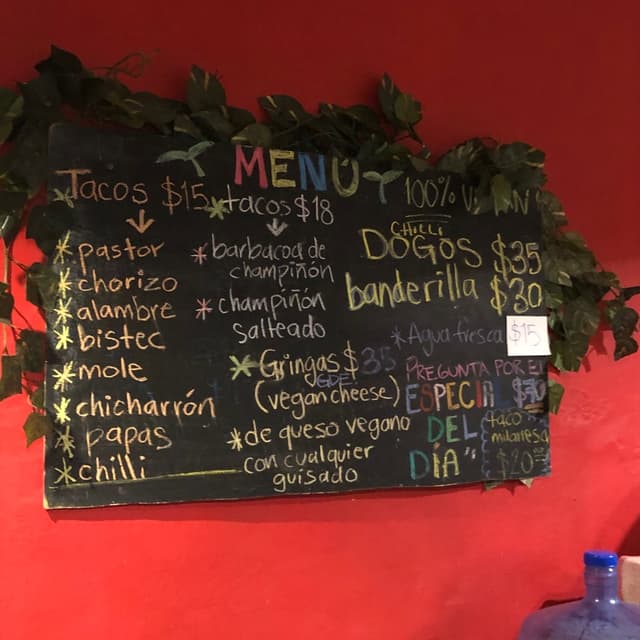 MENÚ
Tacos $15
pastor
chorizo
alambre
bistec
mole
chicharrón
papas
chilli
tacos $18
barbacoa de
champiñón
champiñón
salteado
Gringas $35
GDE!
(vegan cheese)
de queso vegano
con cualquier
guisado
100%
CHILLI
DOGOS $35
banderilla $30
Agua fresca $15
PREGUNTA POR El
ESPECIAL
DEL
DÍA"
taco
milanesa
$20